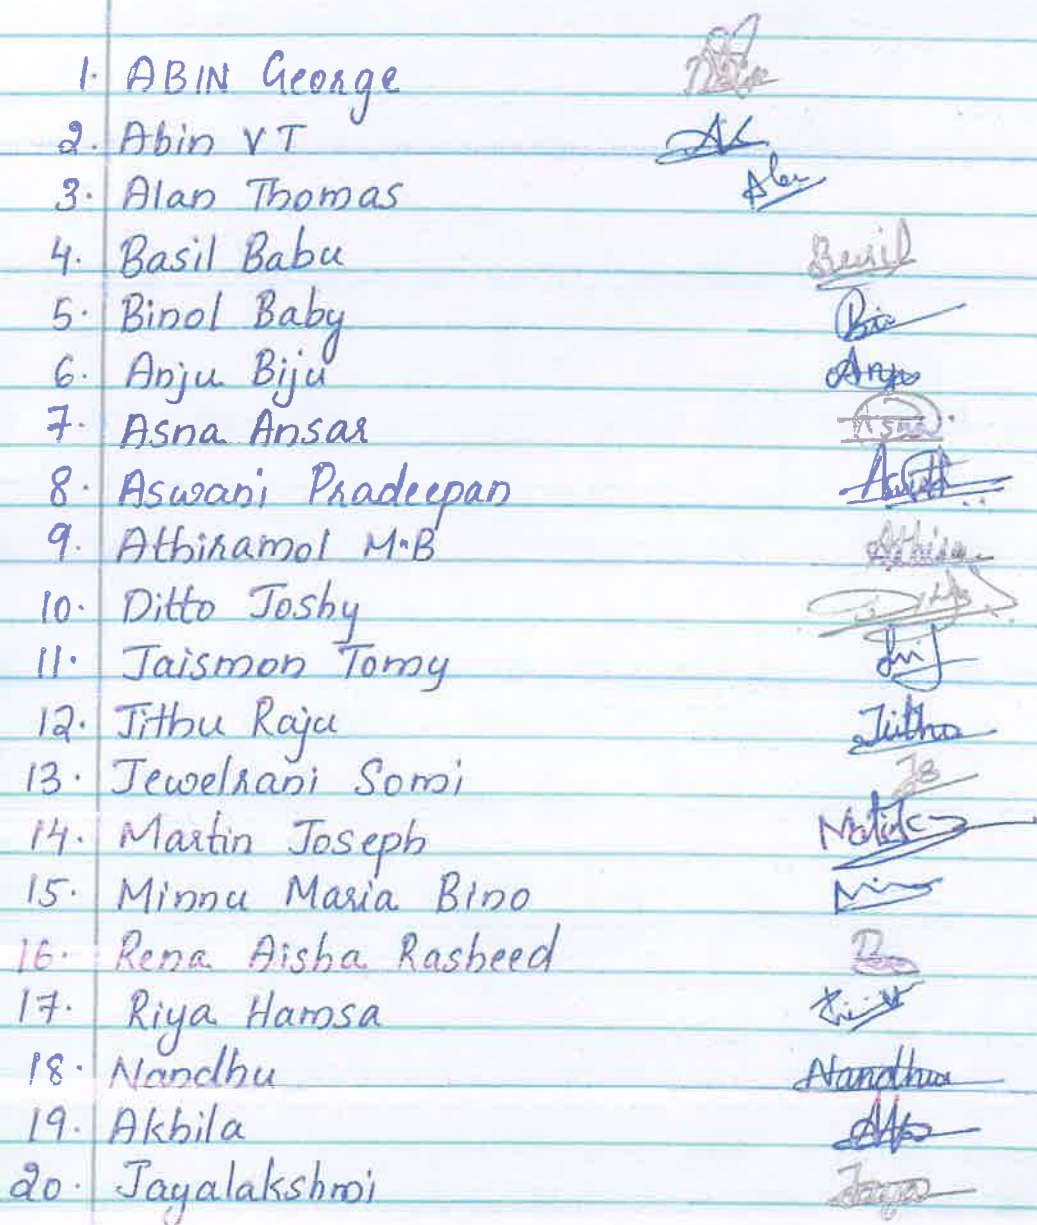 1. ABIN George
2. Abin VT
3. Alan Thomas Alan
4. Basil Babu Basil
5. Binol Baby
6. Anju Biju Anju
7. Asna Ansar Asna
8. Aswani Pradeepan
9. Athiramol M.B Athira
10. Ditto Joshy
11. Jaismon Tomy
12. Jithu Raju Jithu
13. Jewelrani Somi
14. Martin Joseph
15. Minnu Maria Bino
16. Rena Aisha Rasheed
17. Riya Hamsa
18. Nandhu Nandhu
19. Akhila
20. Jayalakshmi Jaya